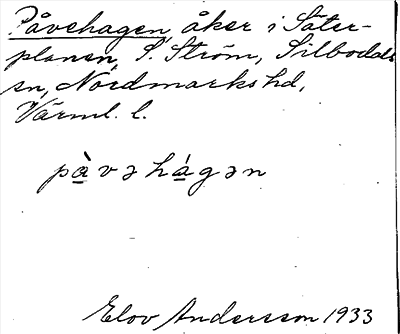 Påvehagen, åker i Säter-
planen, S. Ström, Silbodals
sn, Nordmarks hd,
Värml. l.
pàvəhágən
Elov Andersson 1933